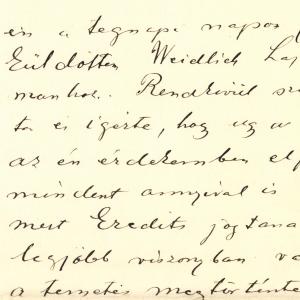 én a tegnapi napos
Küldöttem Weidlich Laj
manhoz. Rendkivül szi
ta és igérte, hogy ugy a
az én érdekemben elj
mindent annyival is
mert Eredits jogtana
legjobb viszonyban va
a temetés megtörténte